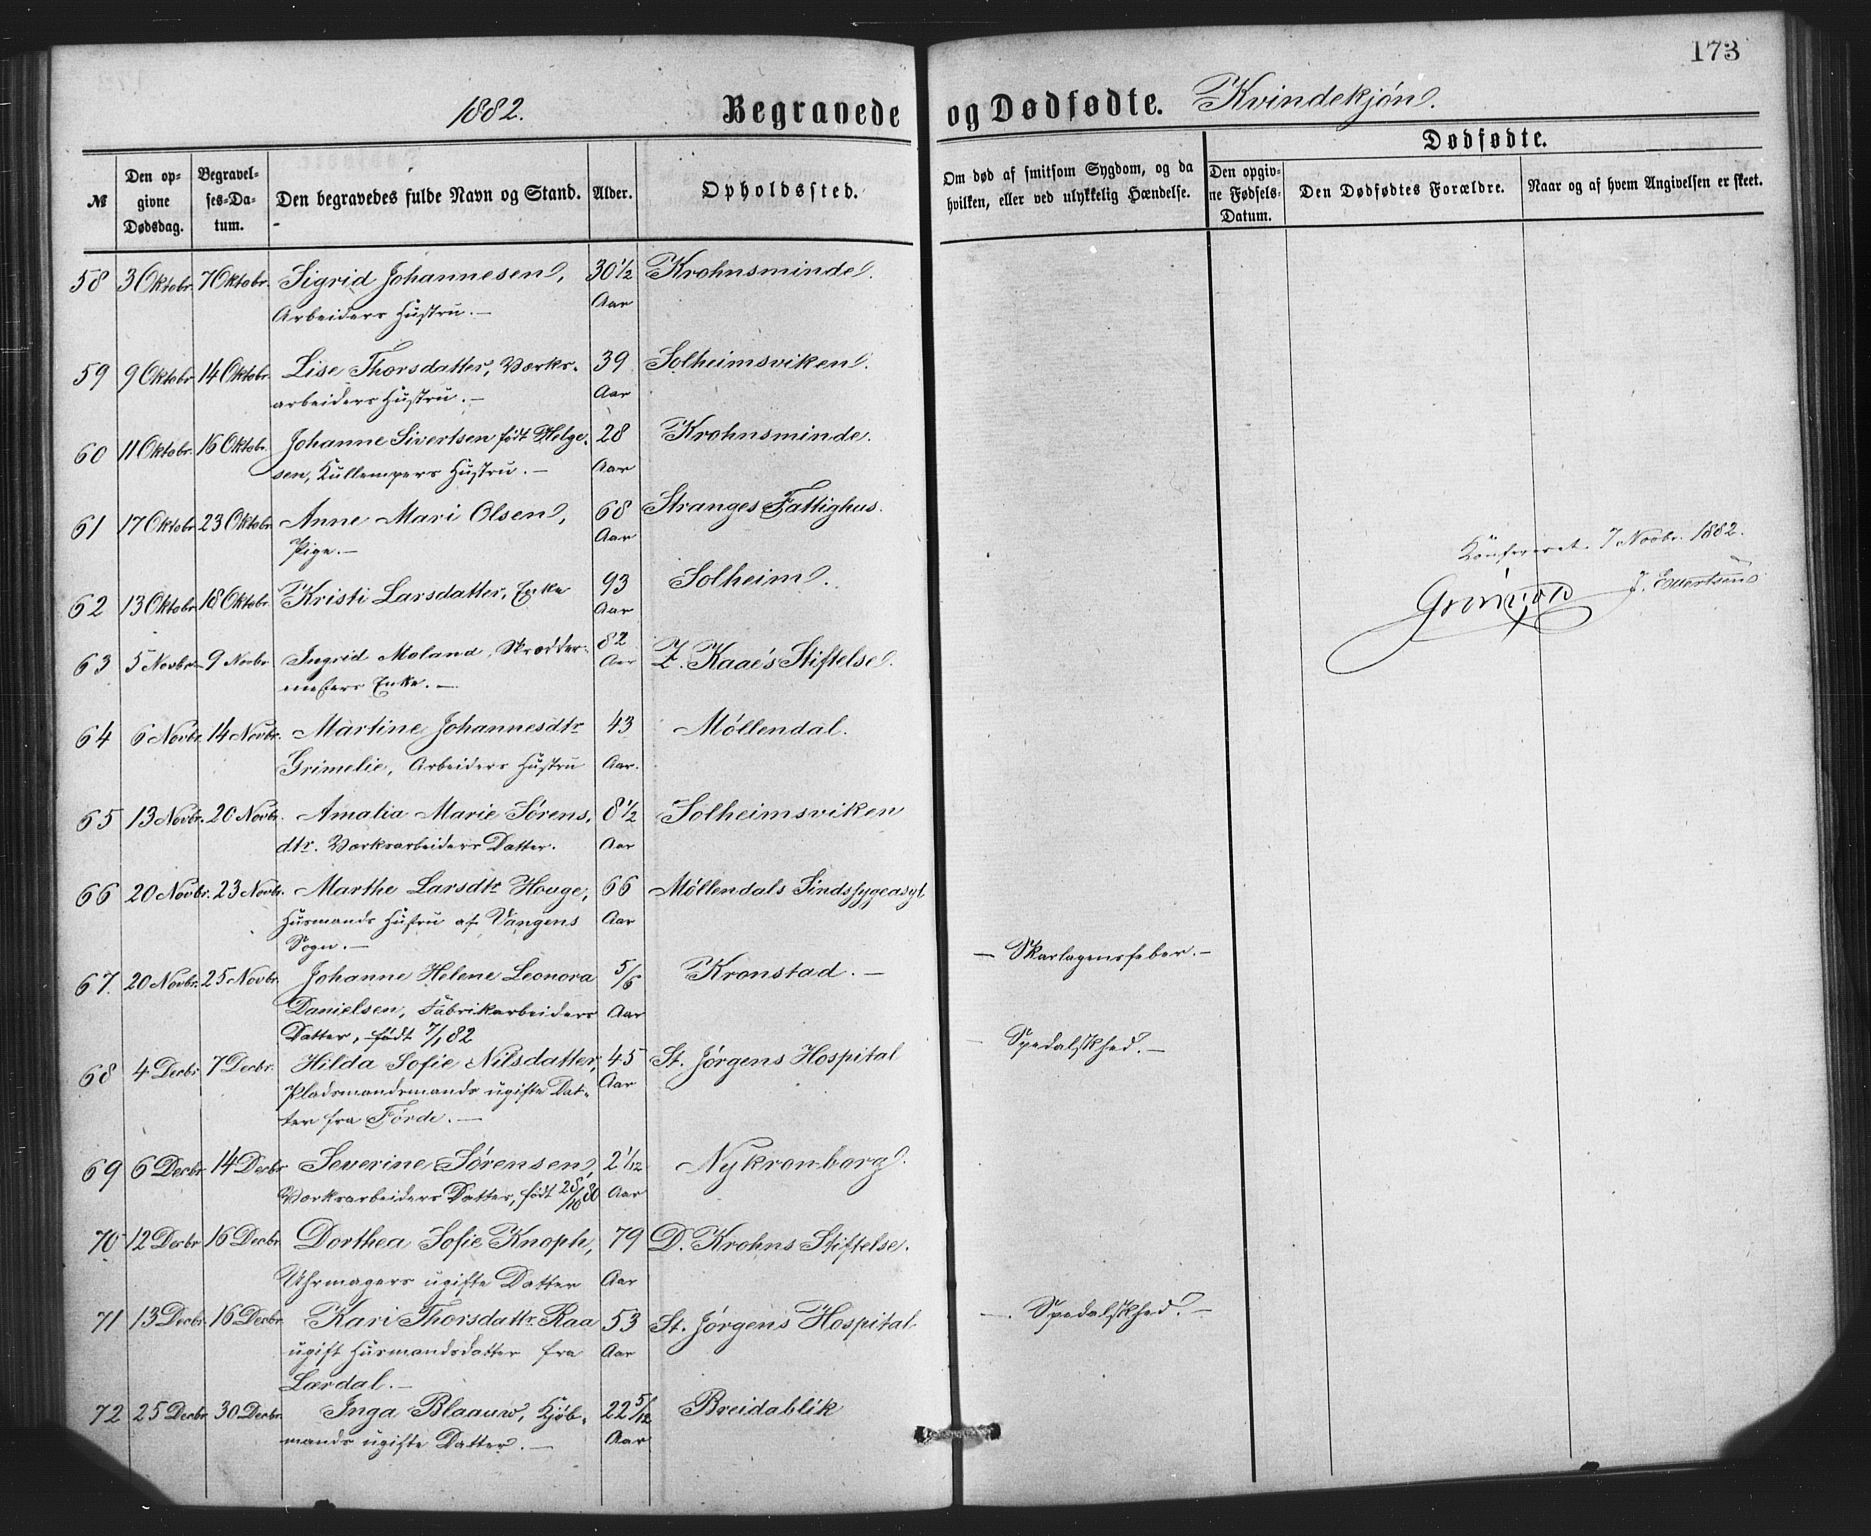 173
1882. Begravede og Dødfødte. Kvindekjön.
№
Den opgivne Dødsdag.
Begravelses-Datum.
Den begravedes fulde Navn og Stand.
Alder.
Opholdssted.
Om død af smitsom Sygdom, og da hvilken, eller ved ulykkelig Hændelse.
Dødfødte.
Den opgivne Fødsels-Datum.
Den Dødfødtes Forældre.
Naar og af hvem Angivelsen er skeet.
58 3 Oktobr. 7 Oktobr. Sigrid Johannesen, 30 1/2 Krohnsminde.
Arbeiders Hustru. — Aar
59 9 Oktobr 14 Oktobr. Lise Thorsdatter, Værks- 39 Solheimsviken.
arbeiders Hustru. — Aar
60 11 Oktobr. 16 Oktobr. Johanne Sivertsen født Helge- 28 Krohnsminde.
sen, Kullempers Hustru. — Aar
61 17 Oktobr 23 Oktobr. Anne Mari Olsen, 68 Stranges Fattighus.
Pige. — Aar
Konfereret. 7 Novbr. 1882.
62 13 Oktobr 18 Oktobr. Kristi Larsdatter, Enke 93 Solheim.
Aar
J. Evertsen
63 5 Novbr. 9 Novbr Ingrid Moland, Skrædder- 82 Z. Kaae's Stiftelse.
mesters Enke. — Aar
64 6 Novbr. 14 Novbr. Martine Johannesdtr 43 Møllendal.
Grimelie, Arbeiders Hustru Aar.
65 13 Novbr. 20 Novbr. Amalia Marie Sørens- 8 1/2 Solheimsviken
dtr. Værksarbeiders Datter. Aar
66 20 Novbr. 23 Novbr. Marthe Larsdtr Houge, 66 Møllendals Sindssygeasyl
Husmands Hustru af Vangens Aar
Sogn. —
67. 20 Novbr. 25 Novbr. Johanne Helene Leonora 5/6 Kronstad. — — Skarlagensfeber. —
Danielsen, Fabrikarbeiders Aar
Datter, født 7/1 82
68 4 Decbr 7 Decbr. Hilda Sofie Nilsdatter, 45 St. Jørgens Hospital — Spedalskhed. —
Pladsmandsmands ugifte Dat- Aar
ter fra Førde. —
69 6 Decbr. 14 Decbr Severine Sørensen, 2 1/12 Nykronborg.
Værksarbeiders Datter, født 28/10 80 Aar
70 12 Decbr 16 Decbr. Dorthea Sofie Knoph, 79 D. Krohns Stiftelse.
Uhrmagers ugifte Datter Aar
71 13 Decbr. 16 Decbr. Kari Thorsdattr. Raa 53 St. Jørgens Hospital — Spedalskhed. —
ugift Husmandsdatter fra Aar
Lærdal. —
72 25 Decbr. 30 Decbr. Inga Blaauw, Kjöb- 22 5/12 Breidablik
mands ugifte Datter. — Aar